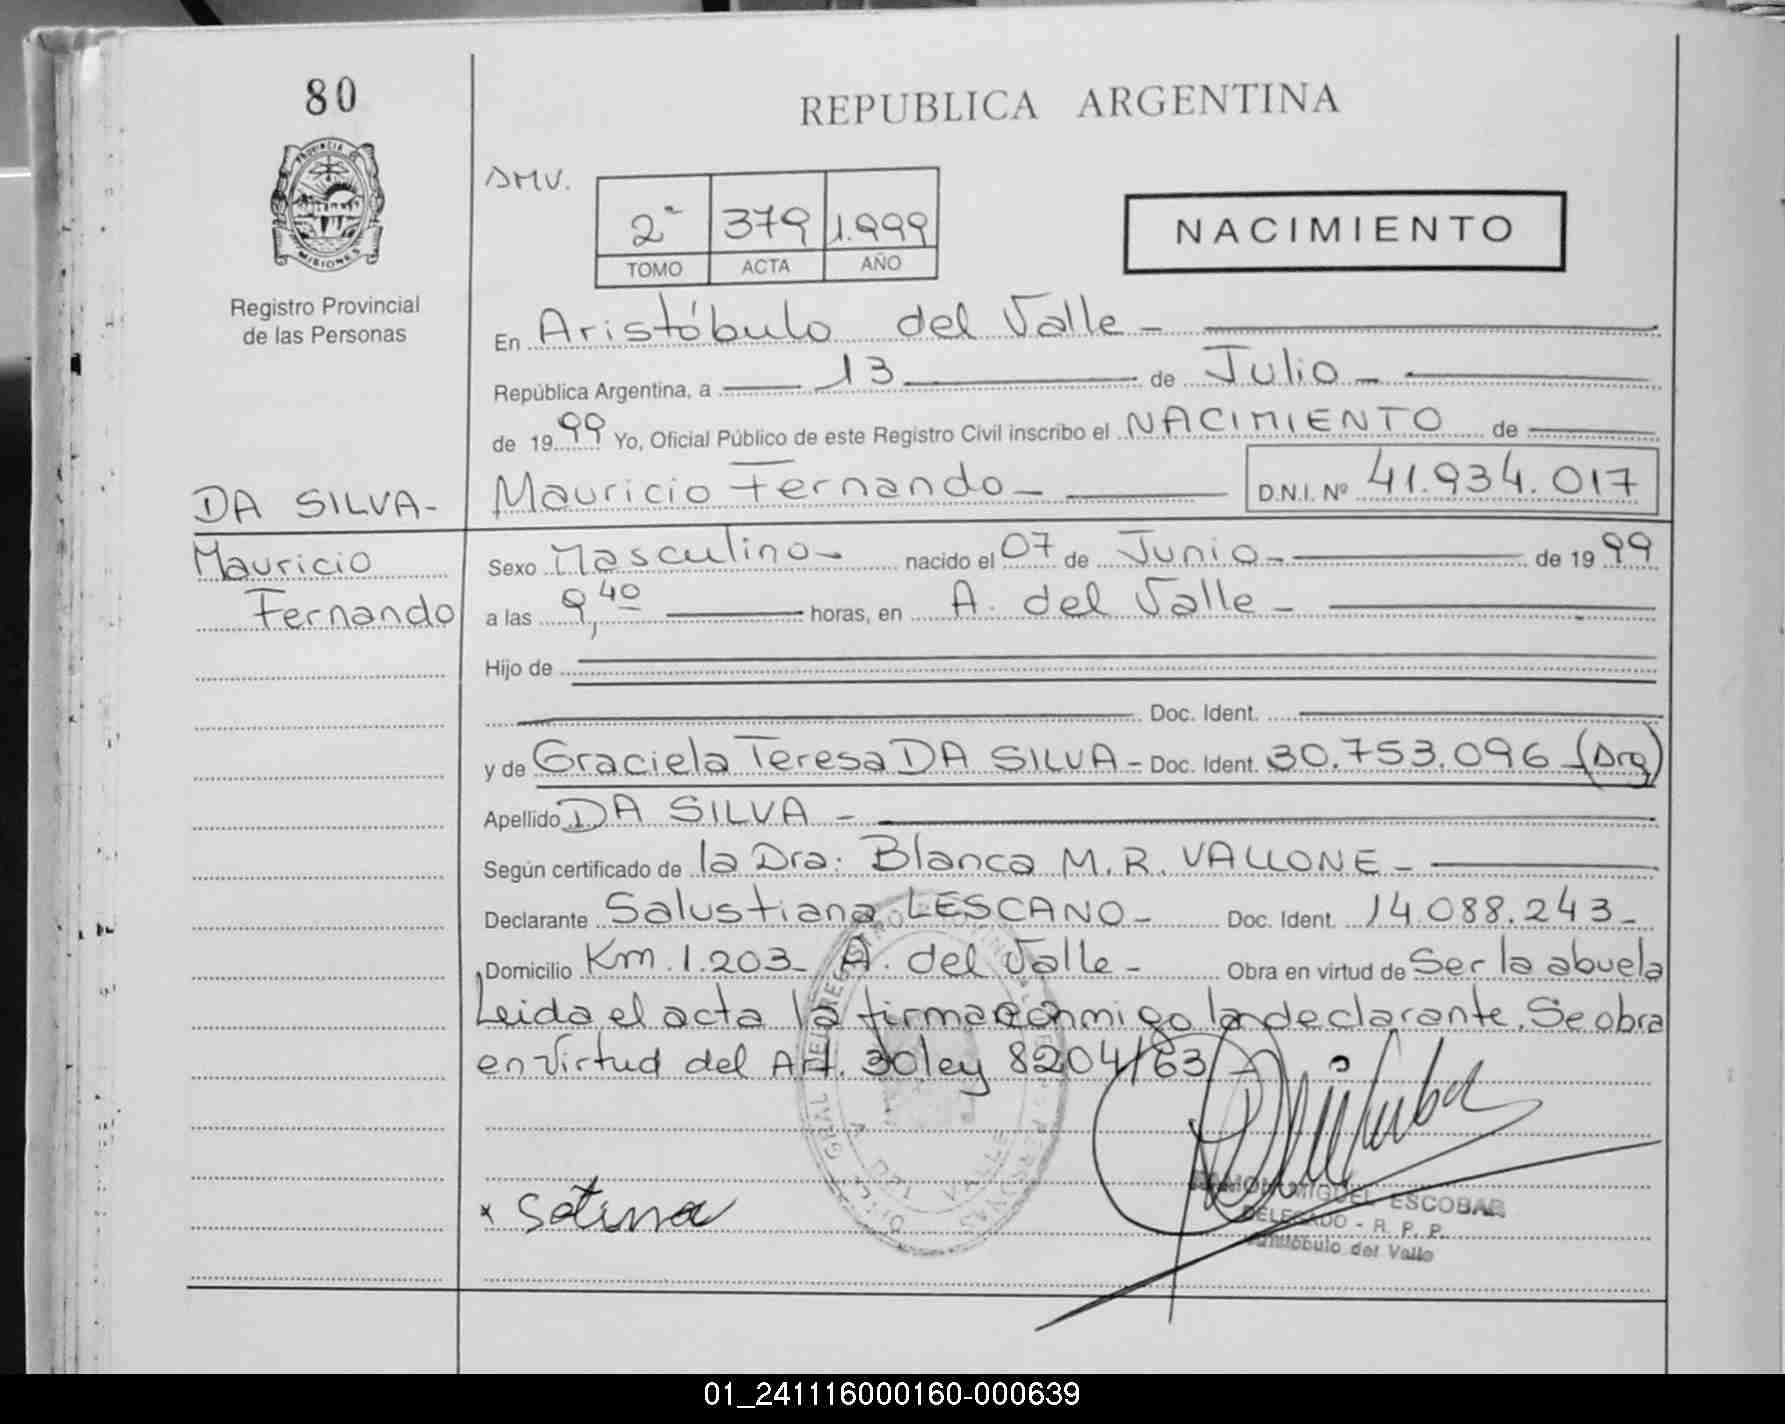 80
REPUBLICA ARGENTINA
PROVINCIA DE
MISIONES
Registro Provincial
de las Personas
DMV.
2ª 379 1.999
TOMO ACTA AÑO
NACIMIENTO
En Aristóbulo del Valle -
República Argentina, a 13 de Julio -
de 1999 Yo, Oficial Público de este Registro Civil inscribo el NACIMIENTO de
DA SILVA- Mauricio Fernando - D.N.I. Nº 41.934.017
Mauricio
Fernando
Sexo Masculino- nacido el 07 de Junio - de 1999
a las 9,40 horas, en A. del Valle -
Hijo de
Doc. Ident.
y de Graciela Teresa DA SILVA - Doc. Ident. 30.753.096 (Arg)
Apellido DA SILVA -
Según certificado de la Dra: Blanca M.R. VALLONE -
Declarante Salustiana LESCANO - Doc. Ident. 14.088.243-
Domicilio Km. 1.203- A. del Valle - Obra en virtud de Ser la abuela
Leida el acta la firma conmigo la declarante. Se obra
en virtud del Art. 30 ley 8204/63
MIGUEL ESCOBAR
DELEGADO - R. P. P.
Aristóbulo del Valle
01_241116000160-000639